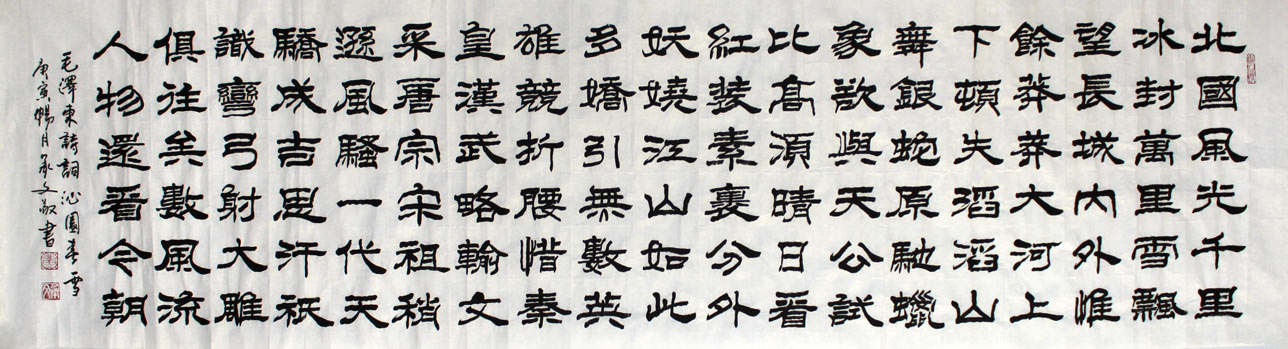 北國風光千里
冰封萬里雪飄
望長城内外惟
餘莽莽大河上
下頓失滔滔山
舞銀蛇原馳蠟
象欲與天公試
比高須晴日看
紅裝素裹分外
妖嬈江山如此
多嬌引無數英
雄競折腰惜秦
皇漢武略輸文
采唐宗宋祖稍
遜風騷一代天
驕成吉思汗祇
識彎弓射大雕
俱往矣數風流
人物還看今朝
毛澤東詩詞沁園春雪
庚寅暢月承文敬書